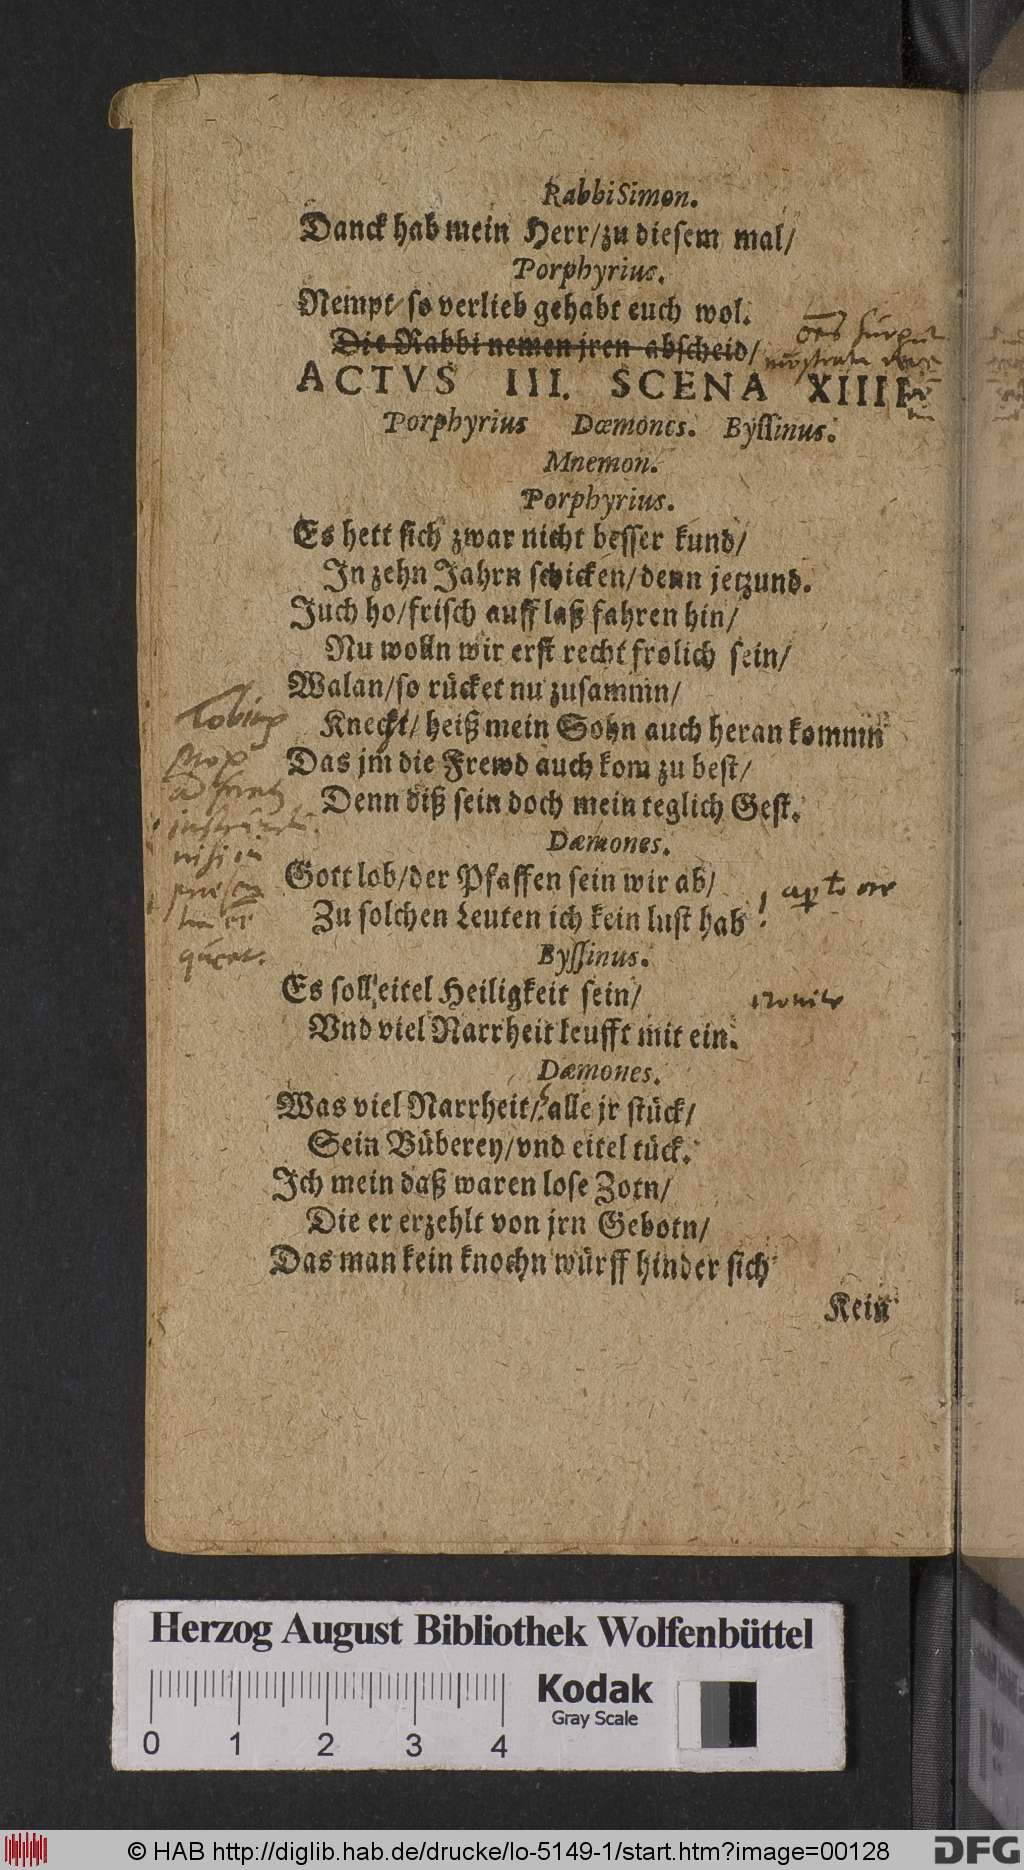 Rabbi Simon.
Danck hab mein Herr/zu diesem mal/
Porphyrius.
Nempt so verlieb gehabt euch wol.
Die Rabbi nemen jren abscheid/
ACTVS III. SCENA XIIII.
Porphyrius Dæmones. Byssinus.
Mnemon.
Porphyrius.
Es hett sich zwar nicht besser kund/
In zehn Jahrn schicken/denn jetzund.
Juch ho/frisch auff laß fahren hin/
Nu wolln wir erst recht frolich sein/
Walan/so rücket nu zusammn/
Knecht/heiß mein Sohn auch heran kommn
Das jm die Frewd auch kom zu best/
Denn diß sein doch mein teglich Gest.
Dæmones.
Gott lob/der Pfaffen sein wir ab/
Zu solchen Leuten ich kein lust hab!
Byssinus.
Es soll eitel Heiligkeit sein/
Vnd viel Narrheit leufft mit ein.
Dæmones.
Was viel Narrheit/alle jr stück/
Sein Büberey/vnd eitel tück.
Ich mein daß waren lose Zotn/
Die er erzehlt von jrn Gebotn/
Das man kein knochn würff hinder sich
Kein
Herzog August Bibliothek Wolfenbüttel
0 1 2 3 4
Kodak
Gray Scale
© HAB http://diglib.hab.de/drucke/lo-5149-1/start.htm?image=00128
DFG